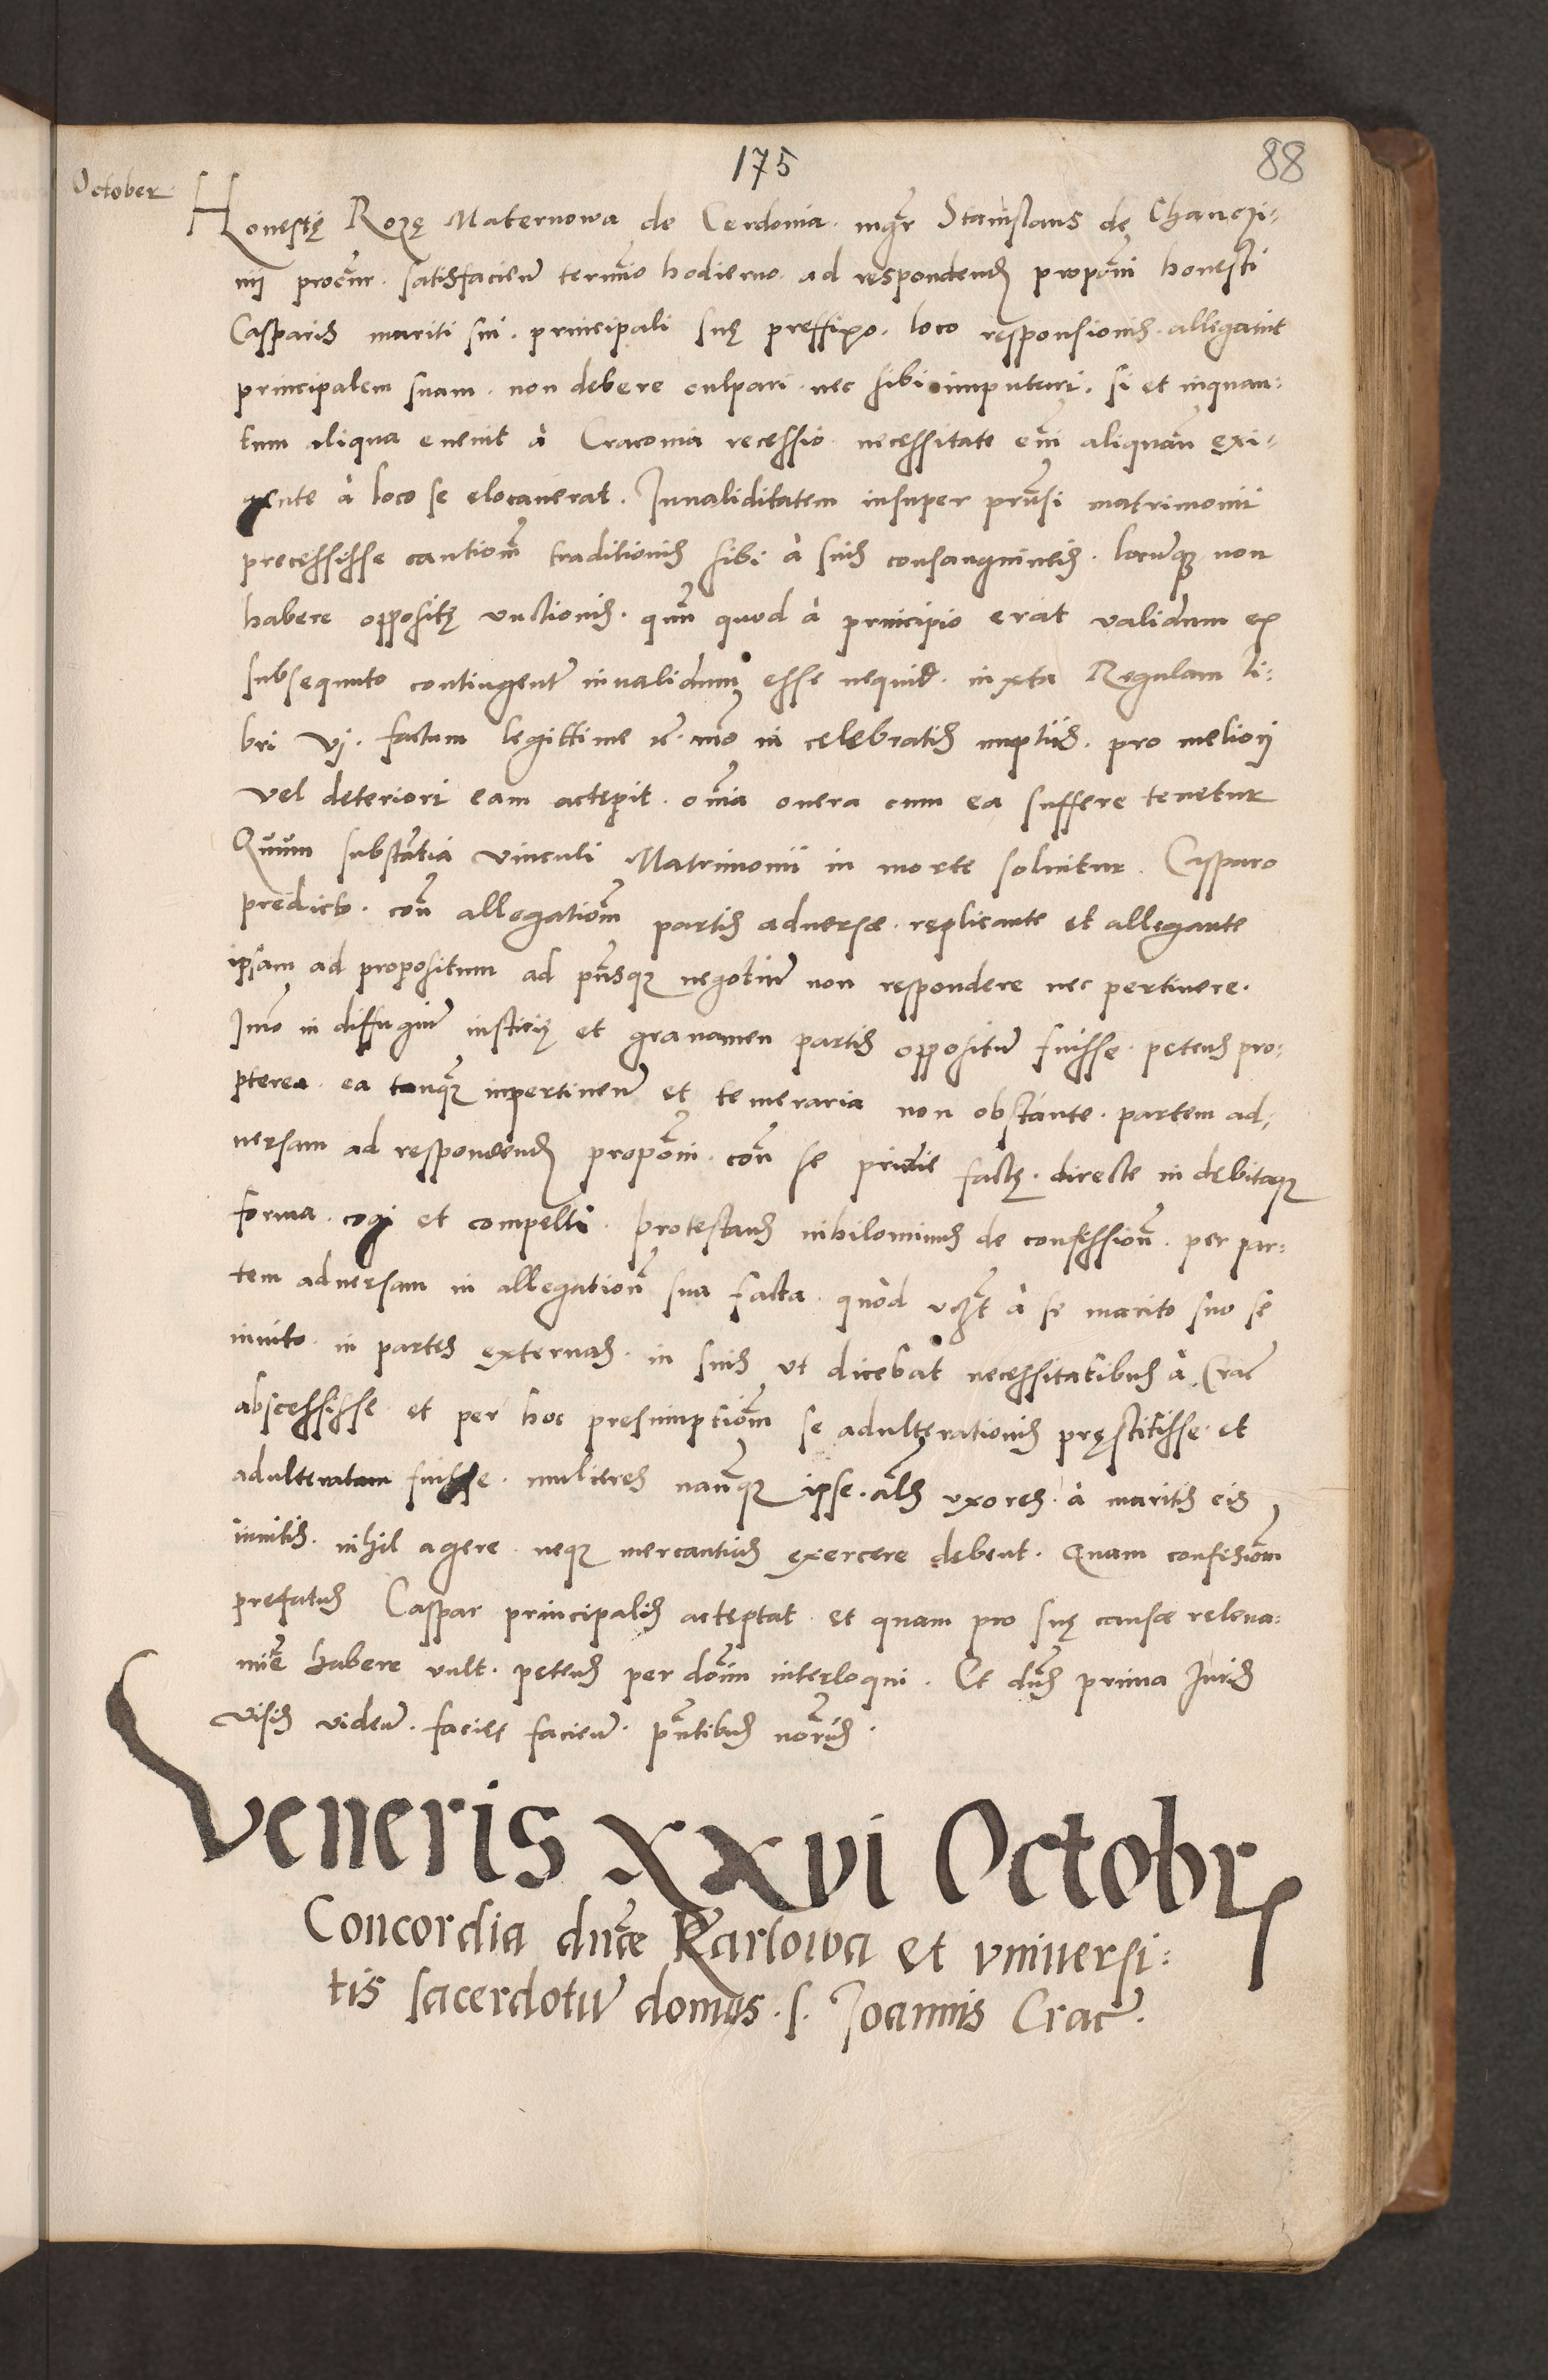 175
88
October
Honestę Rozę Maternowa de Cerdonia. mgr̃ Stanislaus de Chanczi-
nij procur̃. satisfacieñ termĩo hodierno. ad respondendũ propõni honesti
Casparis mariti sui. principali suę preffixo. loco responsionis. allegavit
principalem suam. non debere culpari. nec sibi imputari. si et inquan-
tum aliqua evenit à Cracovia recessio. necessitate eñi aliquañ exi-
gente à loco se elocaverat. Invaliditatem insuper prñsi matrimonii
precessisse cautioñm traditionis sibi à suis consanguineis. locũque non
habere oppositę unctionis. quñ quod à principio erat validum ex
subsequuto contingenter̃ invalidum esse nequid. iuxta Regulam li-
bri vj. factum legittime &c̃. imõ in celebratis nuptiis. pro meliori
vel deteriori eam accepit. om̃ia onera cum ea suffere tenetur
Quum substãtia vinculi Matrimonii in morte solvitur. Casparo
predicto. coñ allegatioñm partis adversae. replicante et allegante
ipsam ad propositum ad pñsque negotiũ non respondere nec pertinere.
Imõ in diffugiũ iusticię et gravamen partis oppositũ fuisse. petens pro-
pterea. ea tanq̃ inpertineñ et temeraria non obstante. partem ad-
versam ad respondendũ propõni. coñ se pridie factę. directe in debitaque
forma. cogi et compelli. protestans nihilominus de confessioñ. per par-
tem adversam in allegatioñ sua facta. quòd vcz̃t à se marito suo se
invito. in partes externas. in suis ut dicebat necessitatibus à Crac̃
abscessisse et per hoc presumptioñm se adulterationis pręstitisse. et
adulteratam fuisse. mulieres nañque ipse. al̃s uxores. à maritis eis
invitis. nihil agere. neque mercantias exercere debent. Quam confesioñm
prefatus Caspar principalis acceptat et quam pro suę causae releva-
mie̋ habere vult. petens per doim̃ interloqui. Et dñs prima Juris
visis videñ. facies facieñ. pñtibus norĩis.
Veneris XXVI Octobris
Concordia dnc̃e Karlowa et universi-
tis sacerdotũ domus. s. Joannis Crac̃.